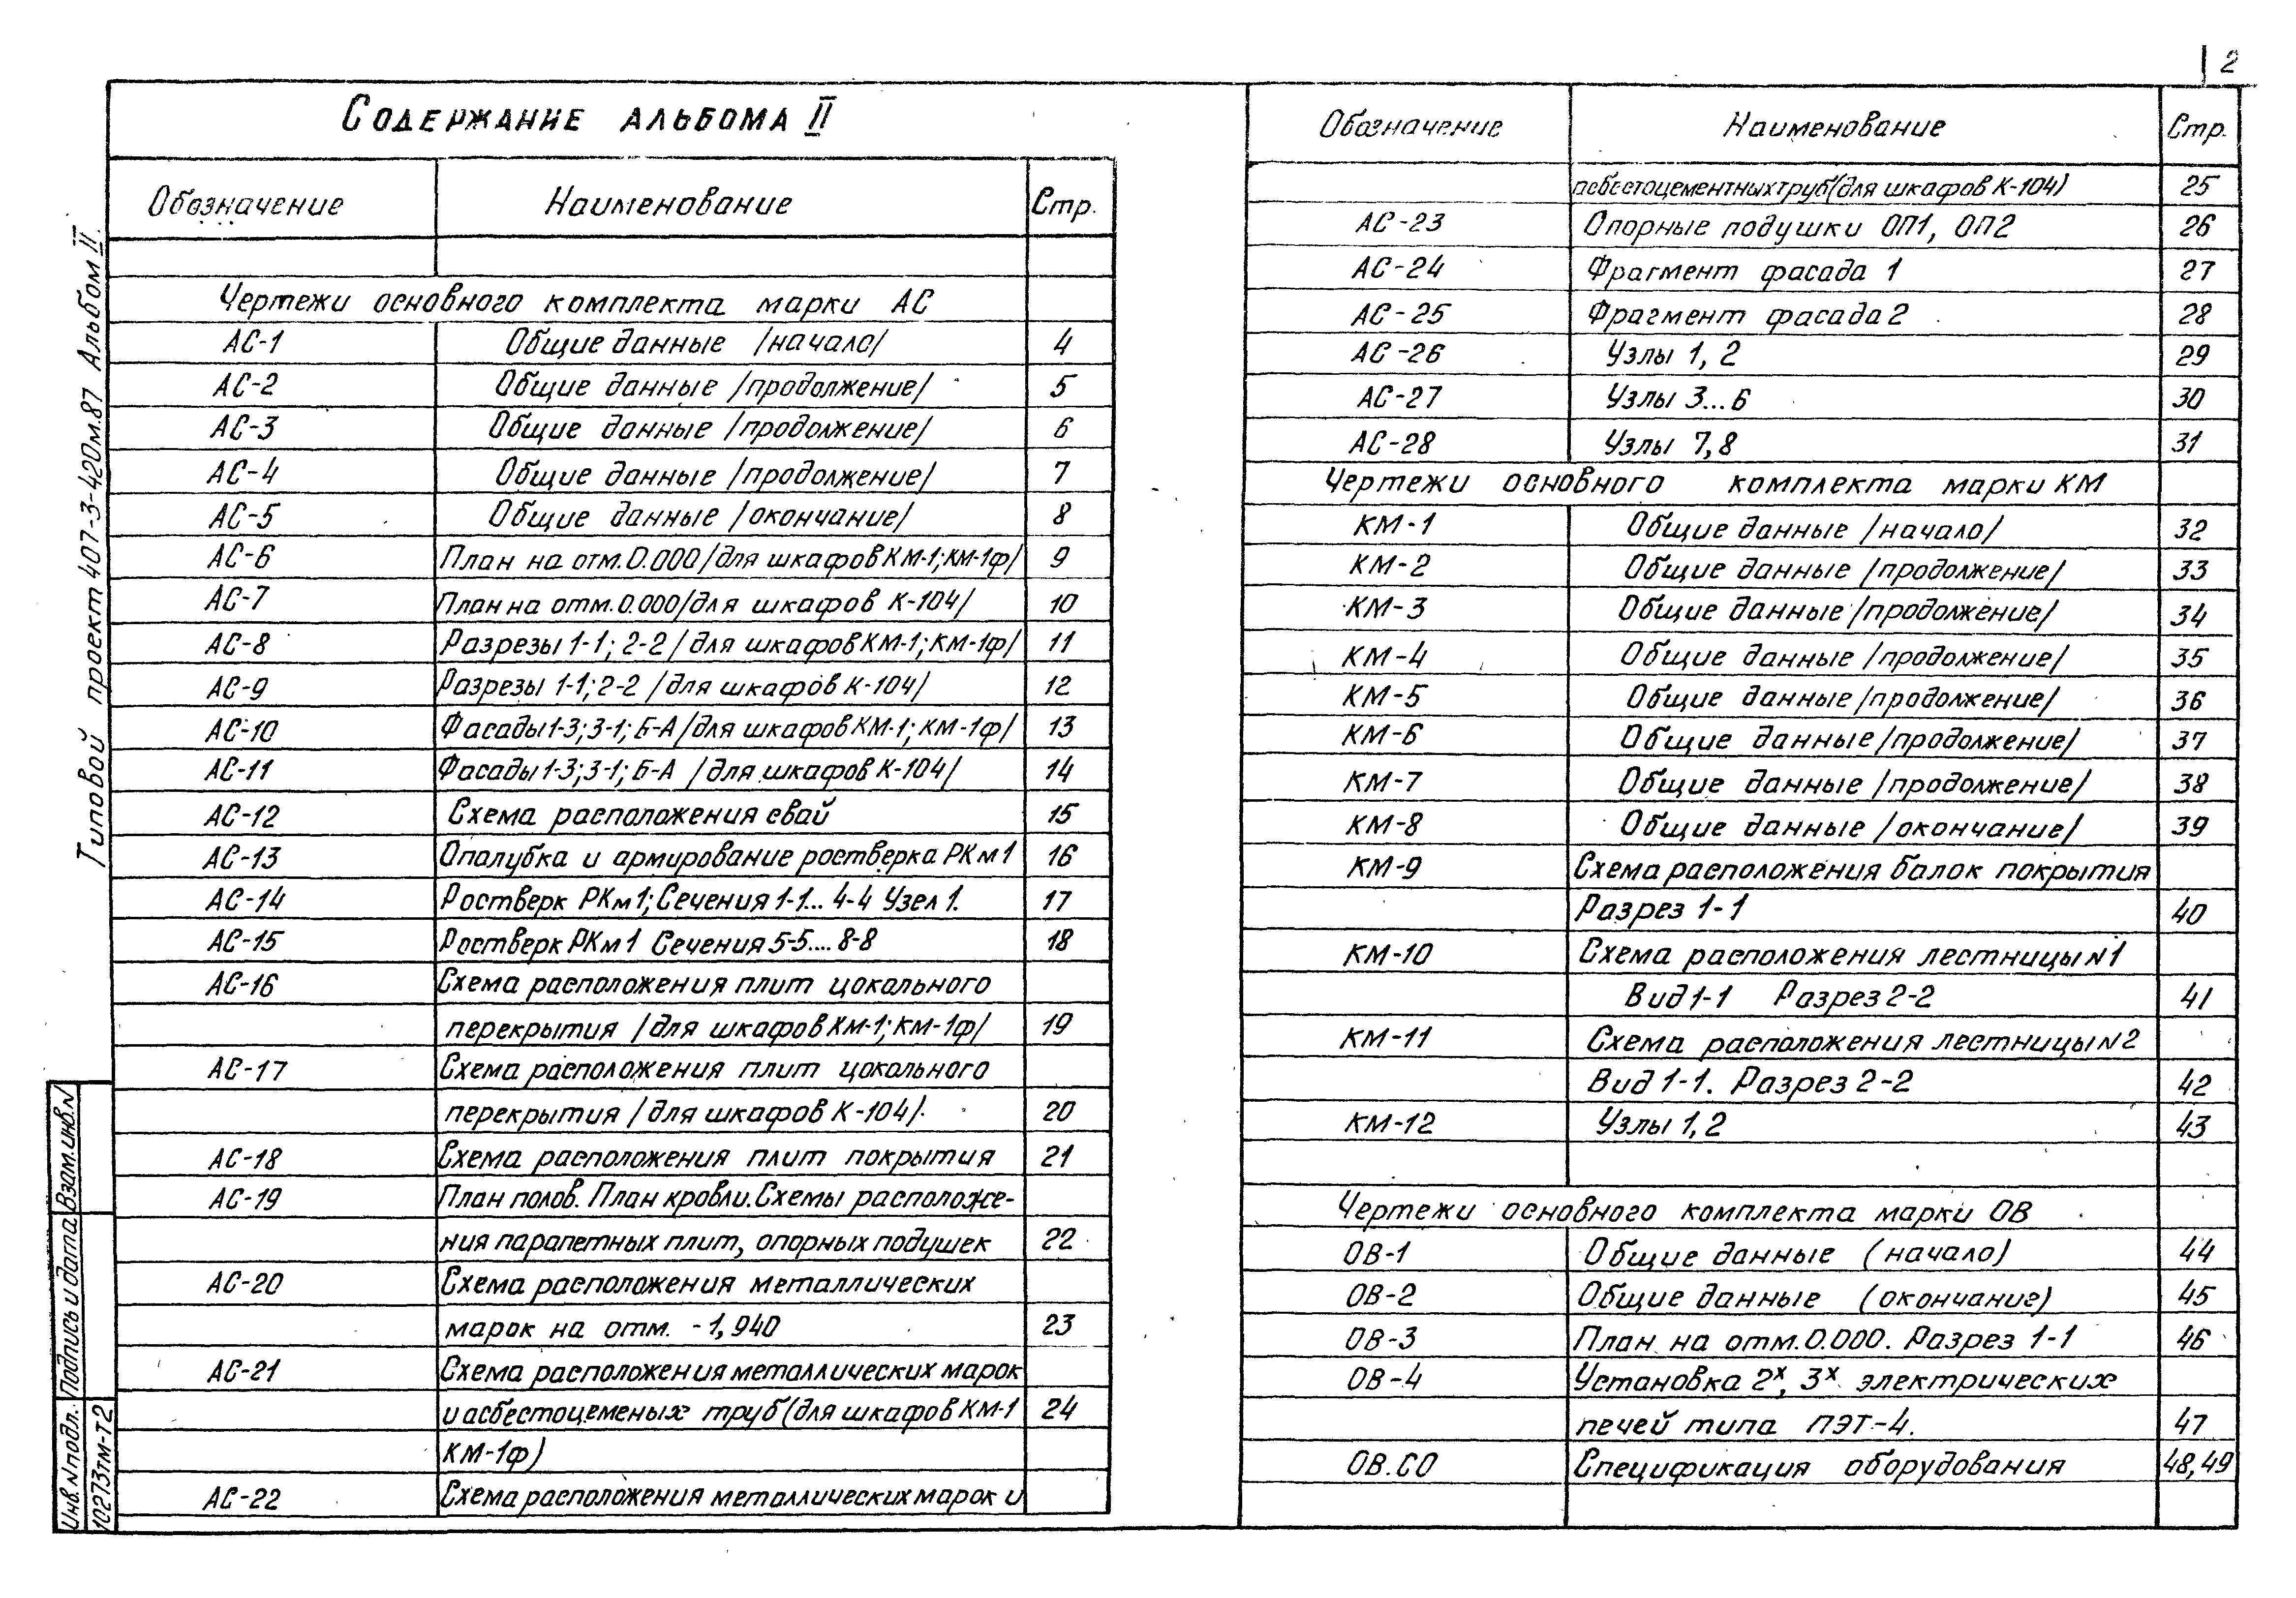 2
Содержание альбома II
Обозначение Наименование Стр.
Чертежи основного комплекта марки АС
АС-1 Общие данные /начало/ 4
АС-2 Общие данные /продолжение/ 5
АС-3 Общие данные /продолжение/ 6
АС-4 Общие данные /продолжение/ 7
АС-5 Общие данные /окончание/ 8
АС-6 План на отм. 0.000 /для шкафов КМ-1; КМ-1ф/ 9
АС-7 План на отм. 0.000 /для шкафов К-104/ 10
АС-8 Разрезы 1-1; 2-2 /для шкафов КМ-1; КМ-1ф/ 11
АС-9 Разрезы 1-1; 2-2 /для шкафов К-104/ 12
АС-10 Фасады 1-3; 3-1; Б-А /для шкафов КМ-1; КМ-1ф/ 13
АС-11 Фасады 1-3; 3-1; Б-А /для шкафов К-104/ 14
АС-12 Схема расположения свай 15
АС-13 Опалубка и армирование ростверка РКм1 16
АС-14 Ростверк РКм1; Сечения 1-1... 4-4 Узел 1. 17
АС-15 Ростверк РКм1 Сечения 5-5.... 8-8 18
АС-16 Схема расположения плит цокольного
перекрытия /для шкафов КМ-1; КМ-1ф/ 19
АС-17 Схема расположения плит цокольного
перекрытия /для шкафов К-104/. 20
АС-18 Схема расположения плит покрытия 21
АС-19 План полов. План кровли. Схемы расположе-
ния парапетных плит, опорных подушек 22
АС-20 Схема расположения металлических
марок на отм. -1,940 23
АС-21 Схема расположения металлических марок
и асбестоцеменых труб (для шкафов КМ-1 24
КМ-1ф)
АС-22 Схема расположения металлических марок и
Обозначение Наименование Стр.
асбестоцементных труб (для шкафов К-104) 25
АС-23 Опорные подушки ОП1, ОП2 26
АС-24 Фрагмент фасада 1 27
АС-25 Фрагмент фасада 2 28
АС-26 Узлы 1, 2 29
АС-27 Узлы 3...6 30
АС-28 Узлы 7, 8 31
Чертежи основного комплекта марки КМ
КМ-1 Общие данные /начало/ 32
КМ-2 Общие данные /продолжение/ 33
КМ-3 Общие данные /продолжение/ 34
КМ-4 Общие данные /продолжение/ 35
КМ-5 Общие данные /продолжение/ 36
КМ-6 Общие данные /продолжение/ 37
КМ-7 Общие данные /продолжение/ 38
КМ-8 Общие данные /окончание/ 39
КМ-9 Схема расположения балок покрытия
Разрез 1-1 40
КМ-10 Схема расположения лестницы N1
Вид 1-1 Разрез 2-2 41
КМ-11 Схема расположения лестницы N2
Вид 1-1. Разрез 2-2 42
КМ-12 Узлы 1, 2 43
Чертежи основного комплекта марки ОВ
ОВ-1 Общие данные (начало) 44
ОВ-2 Общие данные (окончание) 45
ОВ-3 План на отм. 0.000. Разрез 1-1 46
ОВ-4 Установка 2х, 3х электрических
печей типа ПЭТ-4. 47
ОВ.СО Спецификация оборудования 48,49
Типовой проект 407-3-420м.87 Альбом II.
Взам. инв. N
Подпись и дата
Инв. N подл.
10273тм-т2